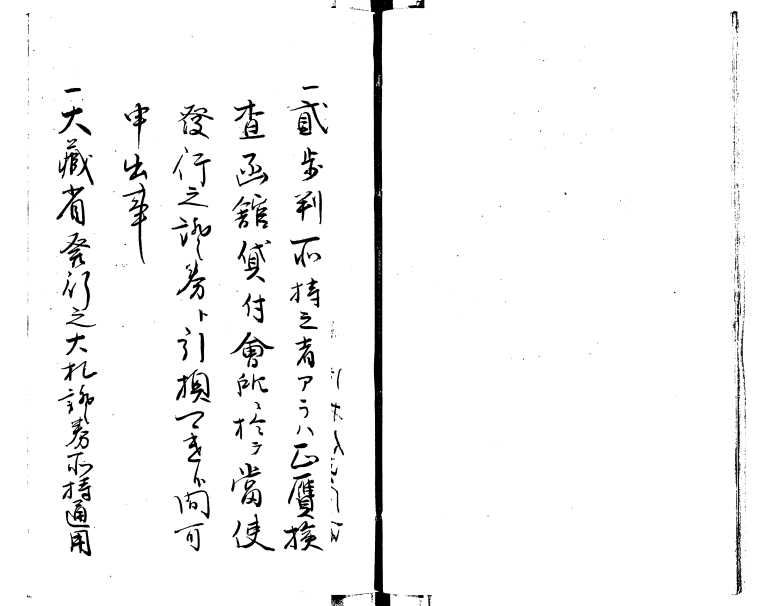 一貮歩判所持之者アラハ正贋検
査函館貸付會所ニ於テ當使
發行之證券ト引換可遣候間可
申出事
一大藏省発行之大札證券所持通用